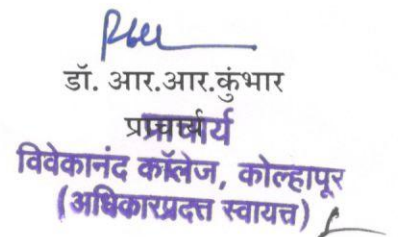 डॉ. आर.आर.कुंभार
प्राचार्य
प्राचार्य
विवेकानंद कॉलेज, कोल्हापूर
(अधिकारप्रदत्त स्वायत्त)